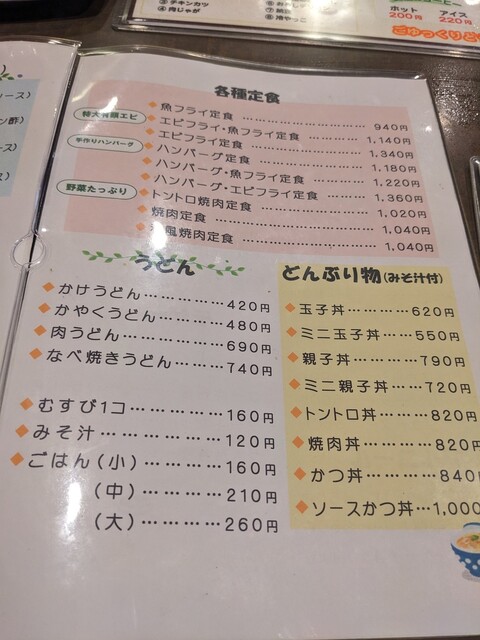 ③チキンカツ
④肉じゃが
⑧冷やっこ
ホット アイス
200円 220円
各種定食
特大有頭エビ
手作りハンバーグ
野菜たっぷり
魚フライ定食 940円
エビフライ・魚フライ定食 1,140円
エビフライ定食 1,340円
ハンバーグ定食 1,180円
ハンバーグ・魚フライ定食 1,220円
ハンバーグ・エビフライ定食 1,360円
トントロ焼肉定食 1,020円
焼肉定食 1,040円
風焼肉定食 1,040円
うどん
かけうどん 420円
かやくうどん 480円
肉うどん 690円
なべ焼きうどん 740円
むすび1コ 160円
みそ汁 120円
ごはん(小) 160円
(中) 210円
(大) 260円
どんぶり物(みそ汁付)
玉子丼 620円
ミニ玉子丼 550円
親子丼 790円
ミニ親子丼 720円
トントロ丼 820円
焼肉丼 820円
かつ丼 840
ソースかつ丼 1,000